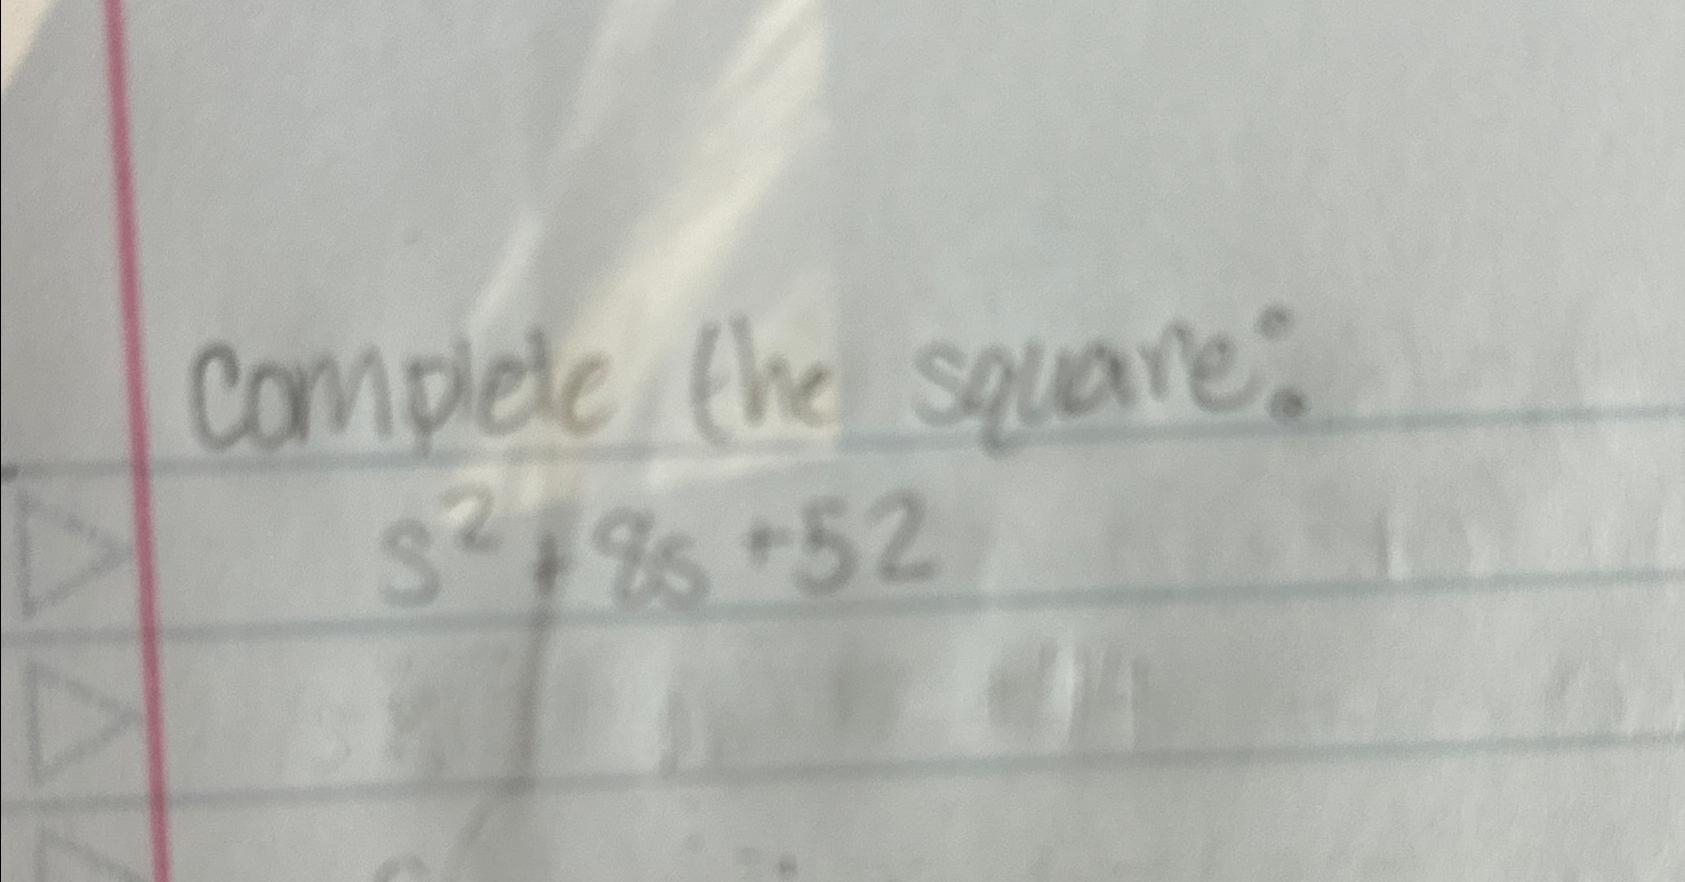 complete the square:
s² + 8s + 52